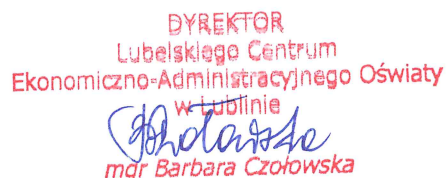 DYREKTOR
Lubelskiego Centrum
Ekonomiczno-Administracyjnego Oświaty
w Lublinie
mgr Barbara Czołowska